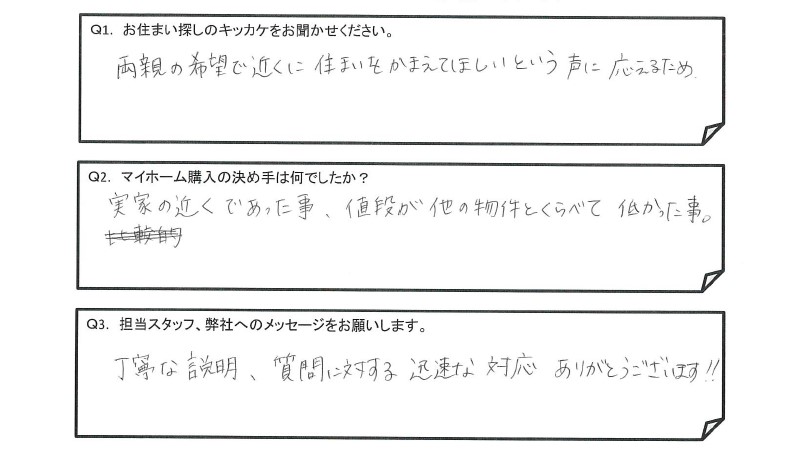 Q1. お住まい探しのキッカケをお聞かせください。
両親の希望で近くに住まいをかまえてほしいという声に応えるため
Q2. マイホーム購入の決め手は何でしたか？
実家の近くであった事、値段が他の物件とくらべて低かった事。
比較的
Q3. 担当スタッフ、弊社へのメッセージをお願いします。
丁寧な説明、質問に対する迅速な対応ありがとうございます!!